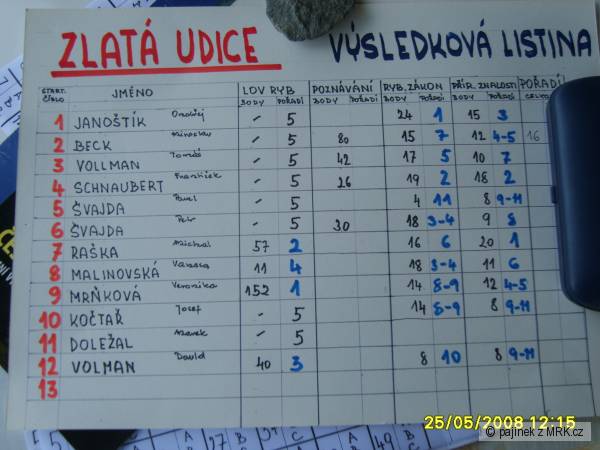 ZLATÁ UDICE VÝSLEDKOVÁ LISTINA
START. ČÍSLO JMÉNO LOV RYB POZNÁVÁNÍ RYB. ZÁKON PŘÍR. ZNALOSTI POŘADÍ
BODY POŘADÍ BODY POŘADÍ BODY POŘADÍ BODY POŘADÍ
1 JANOŠTÍK Ondřej - 5 24 1 15 3
2 BECK Miroslav - 5 80 15 7 12 4-5 16
3 VOLLMAN Tomáš - 5 42 17 5 10 7
4 SCHNAUBERT František - 5 26 19 2 18 2
5 ŠVAJDA Pavel - 5 4 11 8 9-11
6 ŠVAJDA Petr - 5 30 18 3-4 9 8
7 RAŠKA Michal 57 2 16 6 20 1
8 MALINOVSKÁ 11 4 18 3-4 11 6
9 MRŇKOVÁ Veronika 152 1 14 8-9 12 4-5
10 KOČTAŘ Josef - 5 14 8-9 8 9-11
11 DOLEŽAL Marek - 5
12 VOLMAN David 40 3 8 10 8 9-11
13
25/05/2008 12:15
© pajinek z MRK.cz